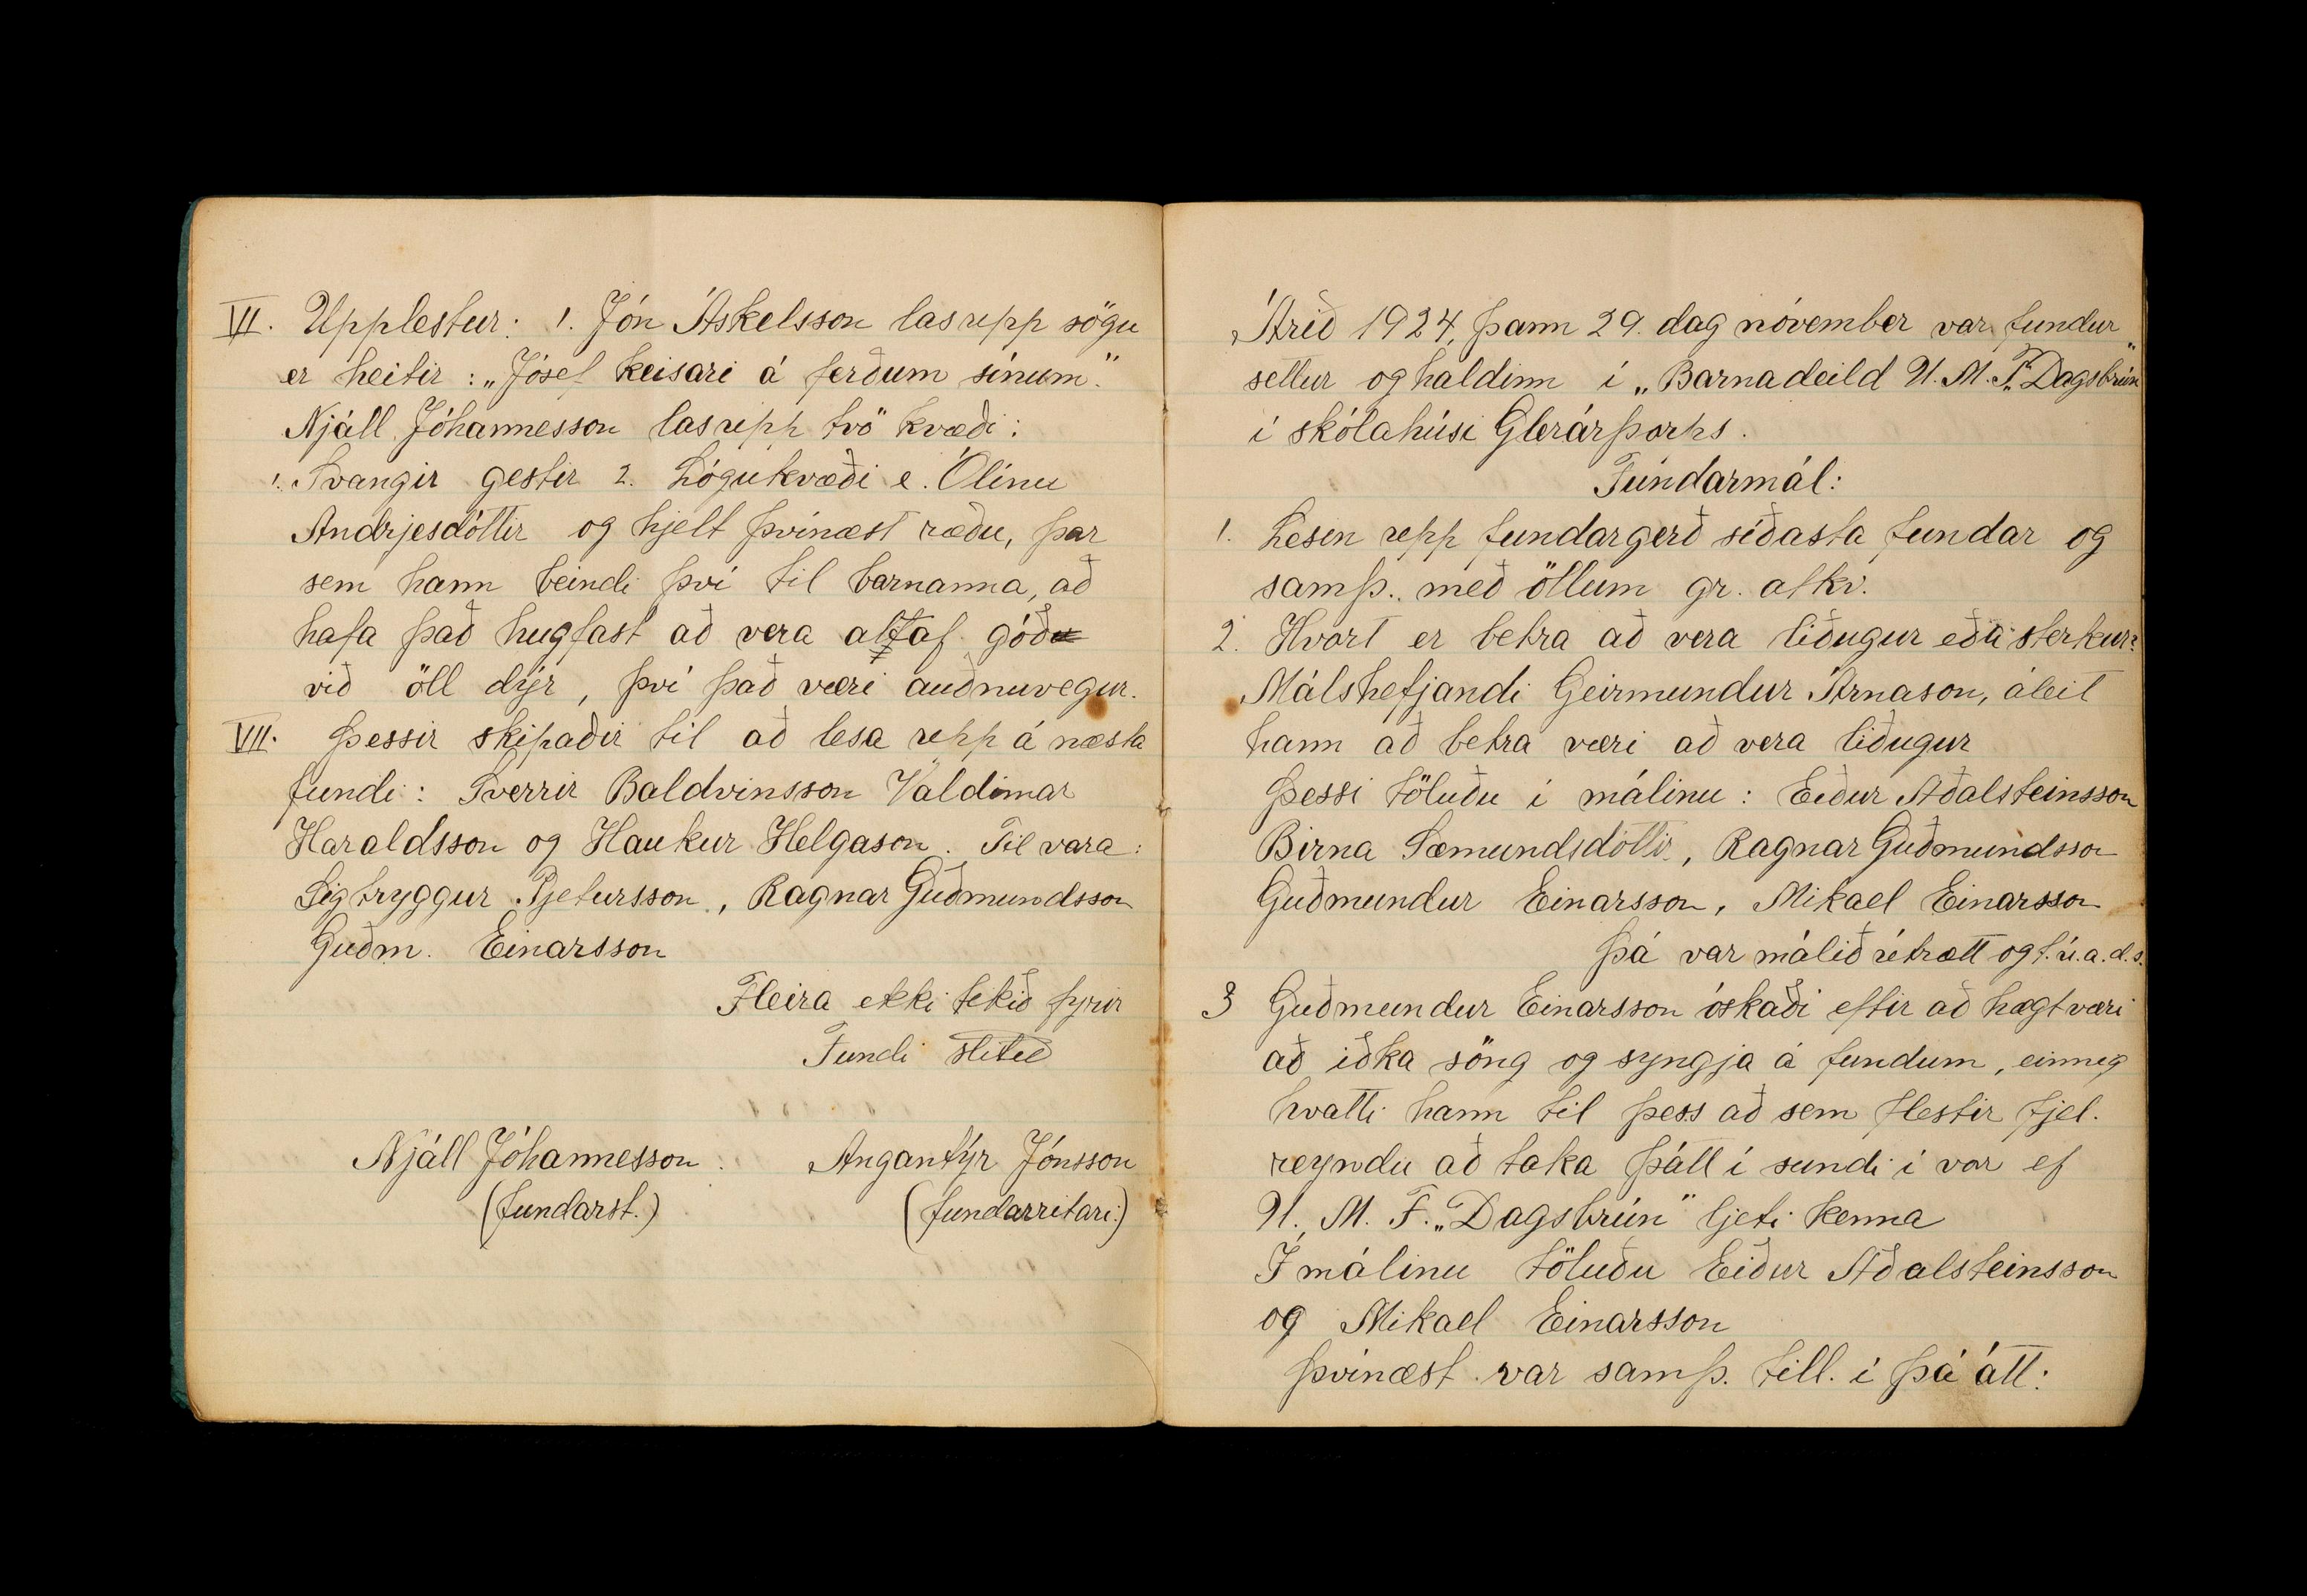 VII. Upplestur: 1. Jón Áskelsson las upp sögu
er heitir: „Jósef keisari á ferðum sínum."
Njáll Jóhannesson las upp tvö kvæði:
1. Svangir gestir 2. Lógukvæði e. Ólínu
Andrjesdóttir og hjelt þvínæst ræðu, þar
sem hann beindi því til barnanna, að
hafa það hugfast að vera altaf góð
við öll dýr, því það væri auðnuvegur.
VII. Þessir skipaðir til að lesa upp á næsta
fundi: Sverrir Baldvinsson Valdimar
Haraldsson og Haukur Helgason. Til vara:
Sigtryggur Pjetursson, Ragnar Guðmundsson
Guðm. Einarsson
Fleira ekki tekið fyrir
Fundi slitið
Njáll Jóhannesson. Angantýr Jónsson
(fundarst.) (fundarritari)
Árið 1924, þann 29. dag nóvember var fundur
settur og haldinn í „Barnadeild U. M. F. „Dagsbrún"
í skólahúsi Glerárþorps.
Fundarmál:
1. Lesin upp fundargerð síðasta fundar og
samþ. með öllum gr. atkv.
2. Hvort er betra að vera liðugur eða sterkur?
Málshefjandi Geirmundur Árnason, áleit
hann að betra væri að vera liðugur
Þessi töluðu í málinu: Eiður Aðalsteinsson
Birna Sæmundsdóttir, Ragnar Guðmundsson
Guðmundur Einarsson, Mikael Einarsson
Þá var málið útrætt og t. ú. a. d. s.
3 Guðmundur Einarsson óskaði eftir að hægt væri
að iðka söng og syngja á fundum, einneg
hvatti hann til þess að sem flestir fjel.
reyndu að taka þátt í sundi í vor ef
U. M. F. „Dagsbrún" ljeti kenna
Í málinu töluðu Eiður Aðalsteinsson
og Mikael Einarsson
Þvínæst var samþ. till. í þá átt: